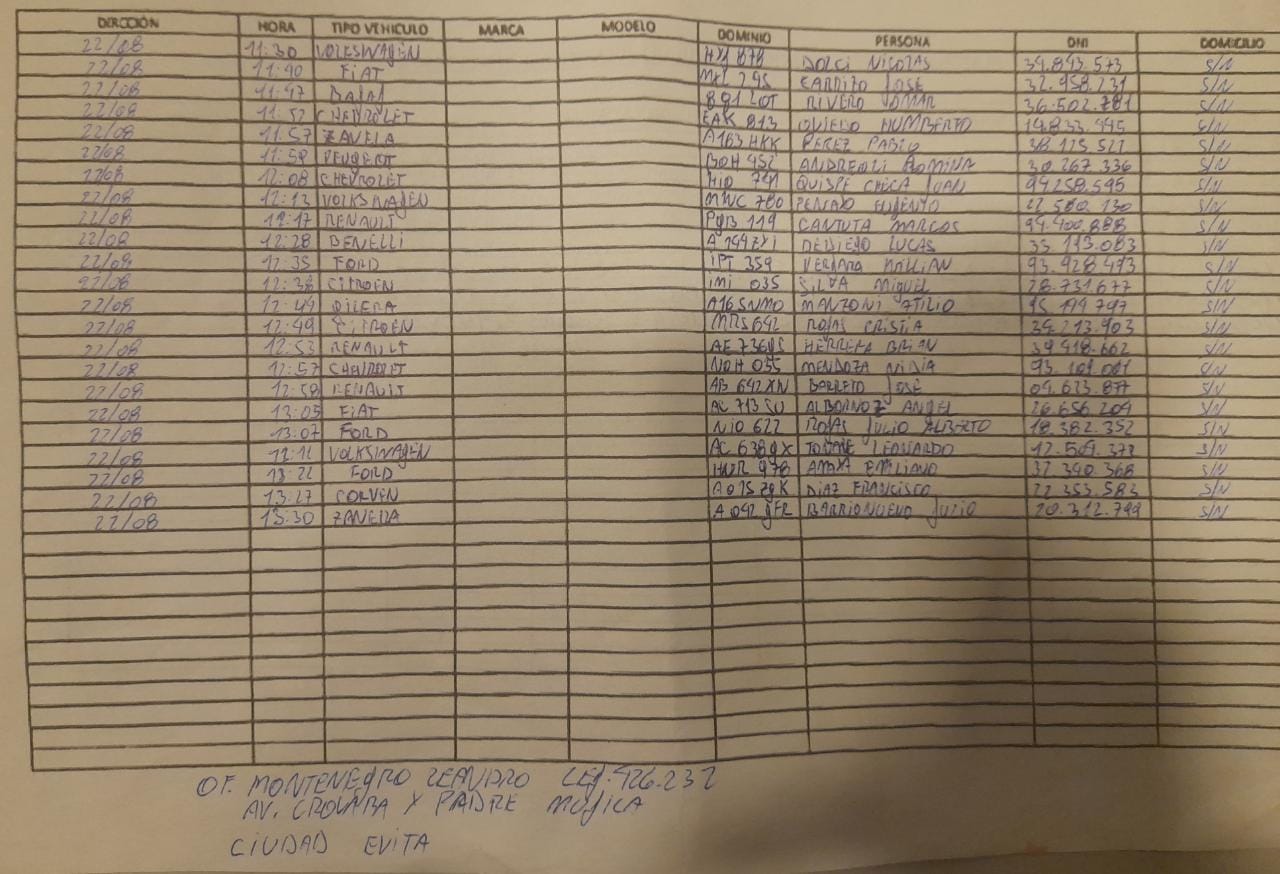 DIRCCIÓN HORA TIPO VEHICULO MARCA MODELO DOMINIO PERSONA DNI DOMICILIO
22/08 11:30 VOLKSWAGEN HYI 878 DOLCI NICOLAS 34.893.573 S/N
22/08 11:40 FIAT CARRIZO JOSE 32.958.231 S/N
22/08 11:47 BAJAJ RIVERO OMAR 36.502.781 S/N
22/08 11:52 CHEVROLET EAK 813 OVIEDO HUMBERTO S/N
22/08 11:57 ZAVELA A163 HKK PEREZ PABLO S/N
22/08 11:59 PEUGEOT BOH 452 ANDREOLI ROMINA 30.267.336 S/N
22/08 12:08 CHEVROLET QUISPE CHECA JUAN 94258.595 S/N
22/08 12:13 VOLKSWAGEN MWC 780 S/N
22/08 12:17 RENAULT CANTUTA MARCOS 94.400.888 S/N
22/08 12:28 BENELLI LUCAS S/N
22/08 12:35 FORD IPT 359 93.928.493 S/N
22/08 12:38 CITROEN IMI 035 SILVA MIGUEL 28.731.677 S/N
22/08 12:49 GILERA A165NMO MANZONI ATILIO S/N
22/08 12:49 CITROEN MRS 642 ROJAS 34.213.903 S/N
22/08 12:53 RENAULT HERRERA BRIAN 39.418.662 S/N
22/08 12:57 CHEVROLET NOH 055 MENDOZA NIDIA S/N
22/08 12:58 RENAULT AB 642XN BARRETO JOSE S/N
22/08 13:05 FIAT ALBORNOZ ANGEL 26.656.204 S/N
22/08 13:07 FORD NIO 622 ROJAS JULIO ALBERTO 18.382.352 S/N
22/08 VOLKSWAGEN AC 638GX LEONARDO S/N
22/08 13:22 FORD AMAYA EMILIANO 32.340.368 S/N
22/08 13:27 CORVEN A015ZGK DIAZ FRANCISCO 22.353.583 S/N
22/08 13:30 ZANELLA A042 GFR BARRIONUEVO JULIO 20.312.799 S/N
OF. MONTENEGRO LEANDRO LEG. 426.232
AV. CROVARA Y PADRE MUJICA
CIUDAD EVITA